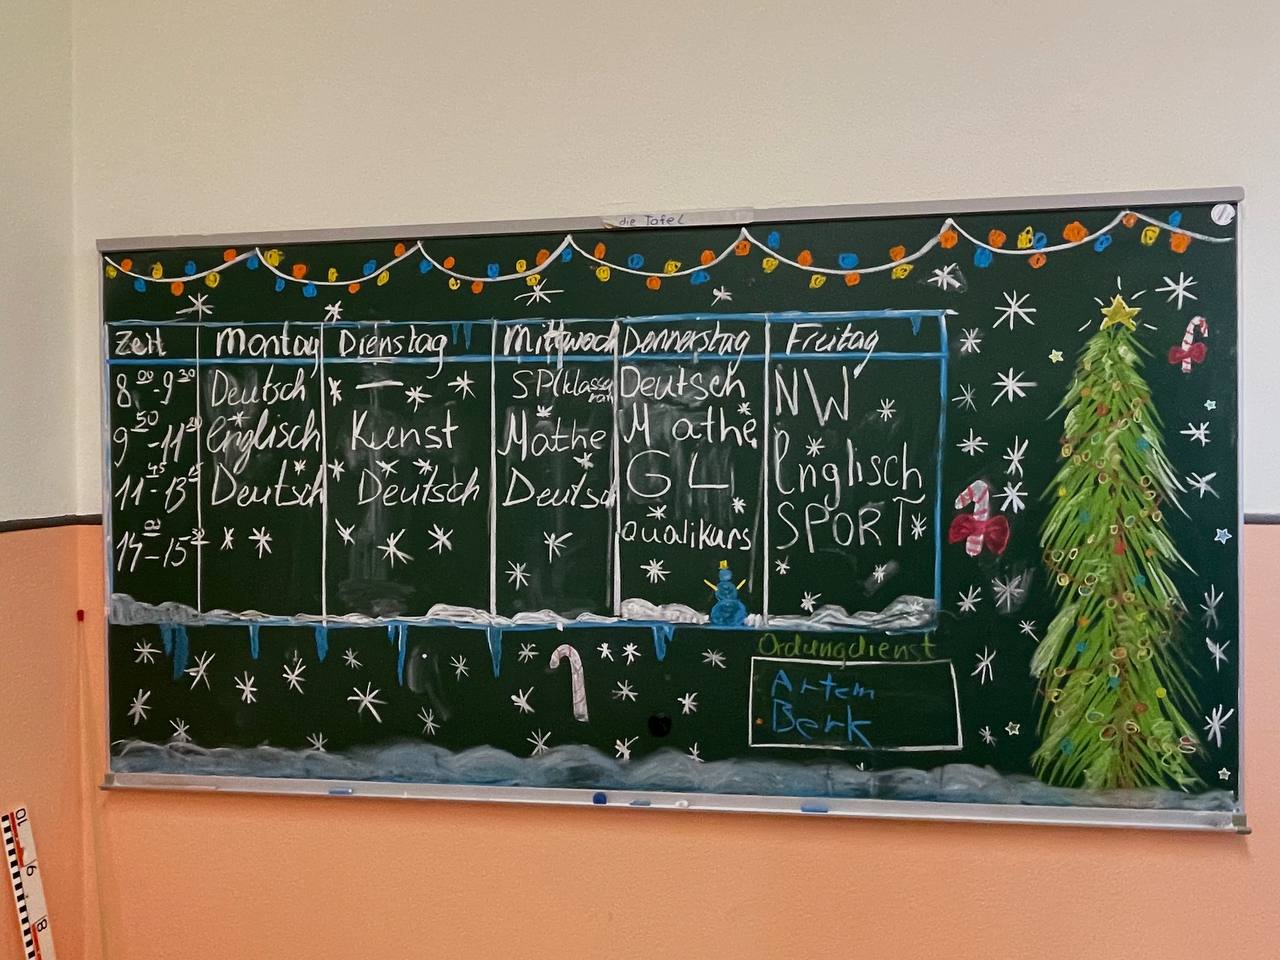 die Tafel
Zeit Montag Dienstag Mittwoch Donnerstag Freitag
8 00 - 9 30 Deutsch — SP (klassenrat Deutsch NW
9 50 - 11 20 Englisch Kunst Mathe Mathe Englisch
11 45 - 13 15 Deutsch Deutsch Deutsch GL SPORT
14 00 - 15 30 Qualikurs
Ordungdienst
Artem
Berk
10
9
8